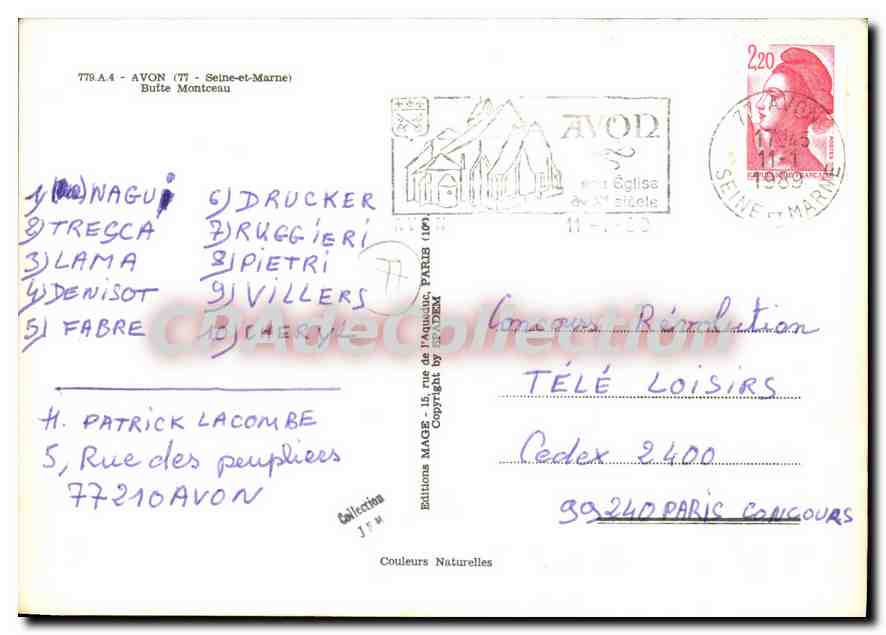 779.A.4 - AVON (77 - Seine-et-Marne)
Butte Montceau
2,20
AVON
Église
siècle
77 AVON
17H45
11-1
1989
SEINE ET MARNE
1) NAGUI
2) TRESCA
3) LAMA
4) DENISOT
5) FABRE
6) DRUCKER
7) RUGGIERI
8) PIETRI
9) VILLERS
10) CHERYL
77
CPAdeCollection
M. PATRICK LACOMBE
5, Rue des peupliers
77210 AVON
Editions MAGE - 15, rue de l'Aqueduc, PARIS (10e)
Copyright by SPADEM
Concours Révolution
TÉLÉ LOISIRS
Cedex 2400
99240 PARIS CONCOURS
Collection
Couleurs Naturelles